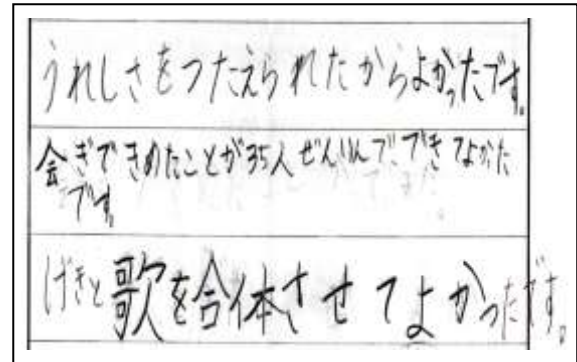 うれしさをつたえられたからよかったです。
会ぎできめたことが35人ぜんいんでできてよかた
です。
げきと歌を合体させてよかったです。